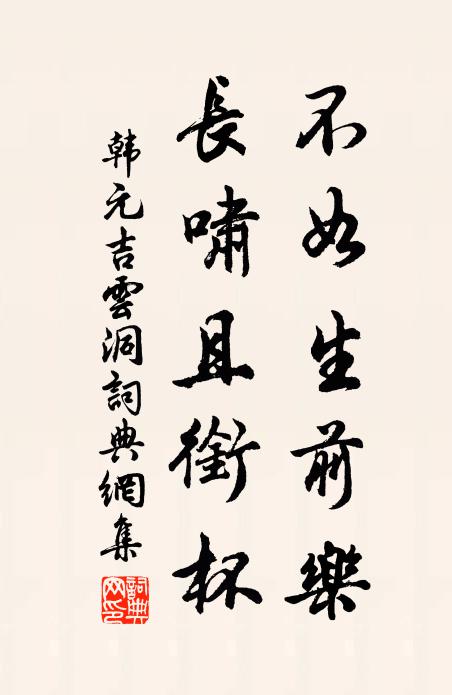 不如生前樂
長嘯且銜杯
韩元吉雲洞詞典網集
詞典網印